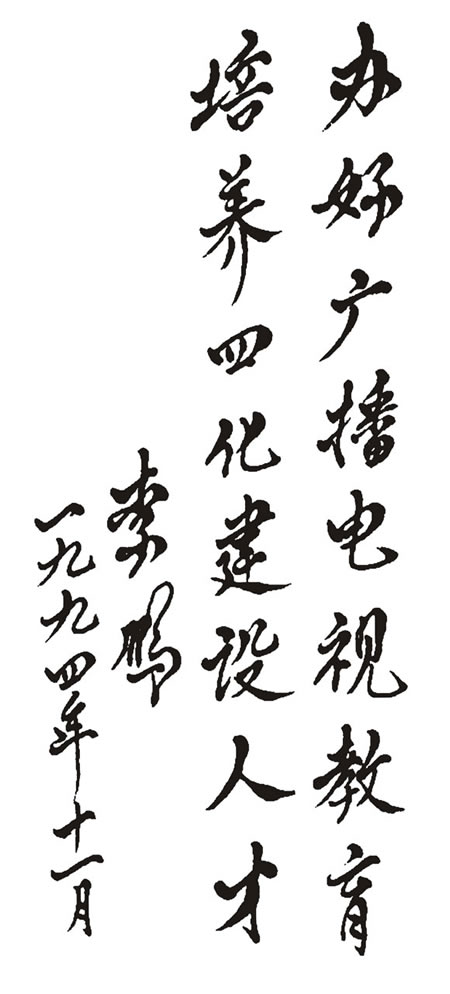 办好广播电视教育
培养四化建设人才
李鹏
一九九四年十一月